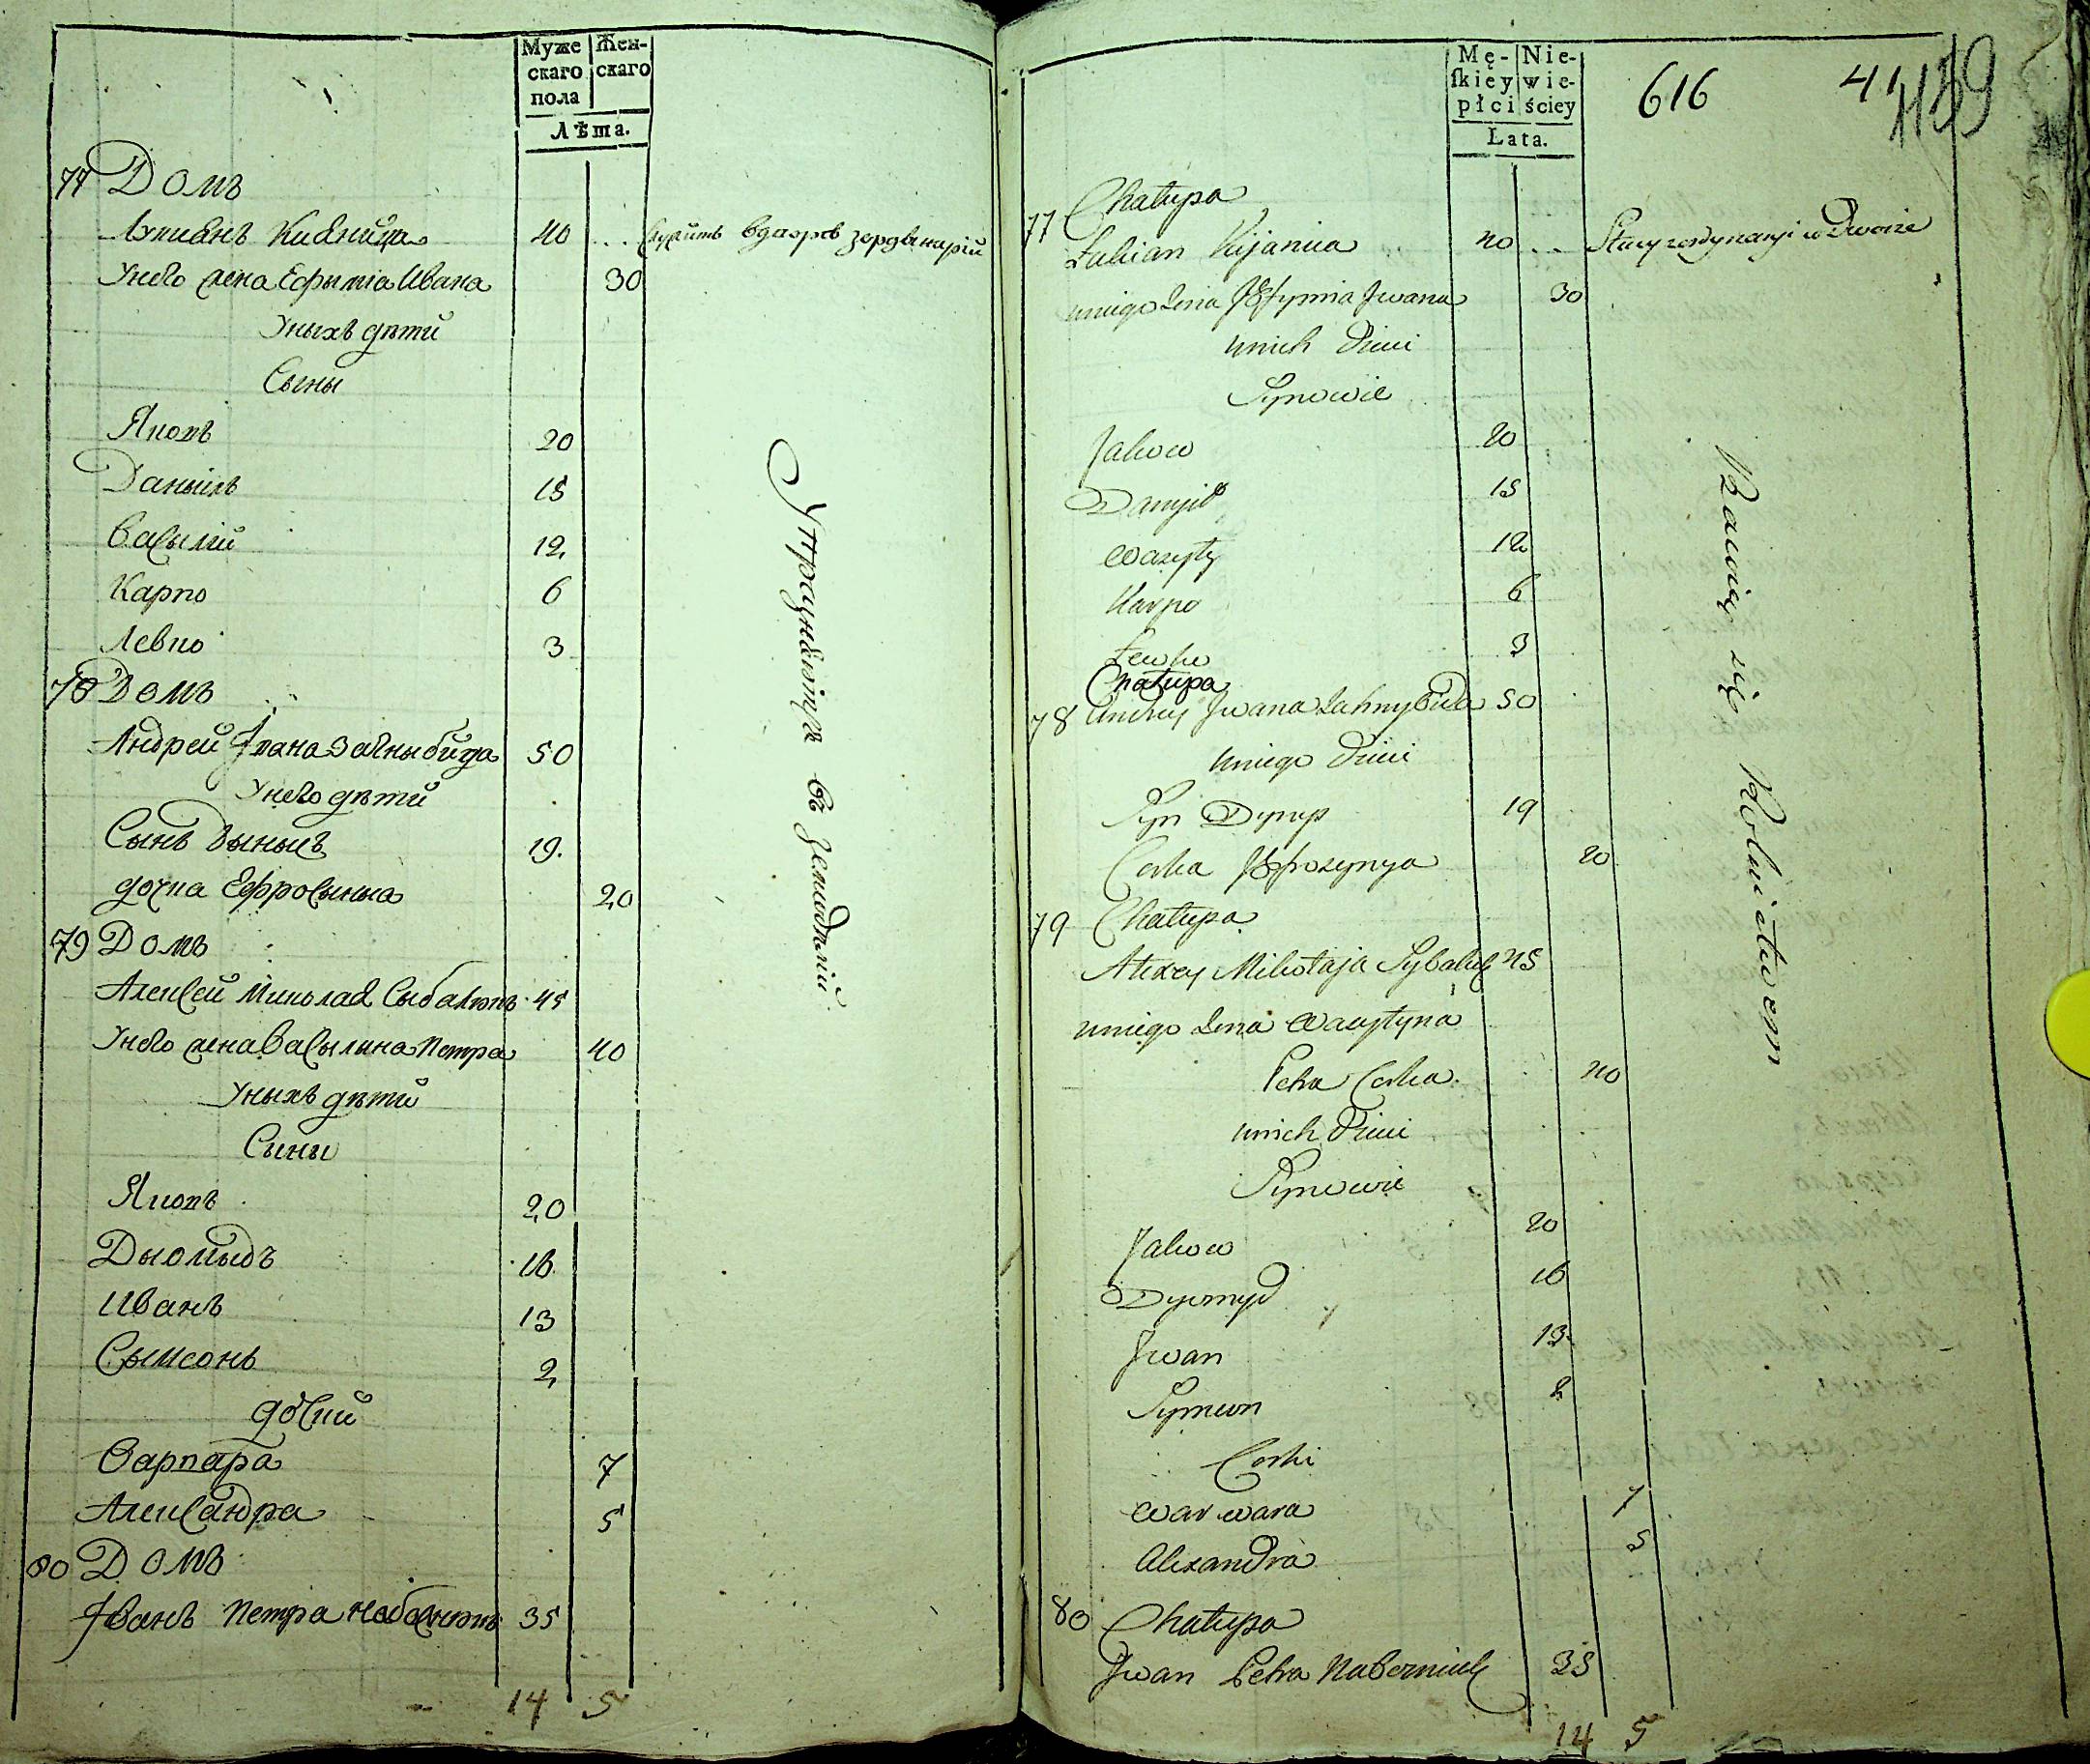 Муже
скаго
пола
Жен-
скаго
Лѣта.
77 Домъ
Лукианъ Кияница 40 ... Служитъ вдворѣ
Унего жена Ефымiа Ивана 30
Уныхъ дѣти
Сыны
Яковъ 20
Даныилъ 15
Васылiй 12
Карпо 6
Левко 3
78 Домъ
Андрей Ивана Загныбида 50
Унего дѣти
Сынъ 19.
дочка Ефросыныа 20
79 Домъ
Алексей Миколая Сыбалюкъ 45
Унего жена Васылына Петра 40
Уныхъ дѣти
Сыны
Яковъ 20
Дыомыдъ 16
Иванъ 13
Сымеонъ 2
дочки
Варвара 7
Александра 5
80 Домъ
Иванъ Петра 35
14 5
Упражняются въ земледѣлiи
Mę-
ſkiey
płci
Nie-
wie-
ściey
Lata.
616 41
Chałupa
77 Łukian Kijanica 40 ... Służy w Dworze
uniego żona Jefymia Jwana 30
unich Dzieci
Synowie
Jakow 20
Danyił 15
Wasyly 12
Karpo 6
Lewko 3
Chałupa
78 Andrey Jwana Zahnybida 50
uniego Dzieci
Syn 19
Corka Jefrosynya 20
79 Chałupa
Alexey Mikołaja Sybaluk 45
uniego żona Wasylyna
Petra Corka 40
unich Dzieci
Synowie
Jakow 20
Dyomyd 16
Jwan 13
Symeon 2
Corki
Warwara 7
Alexandra 5
80 Chałupa
Jwan Petra 35
14 5
Bawią się Rolnictwem